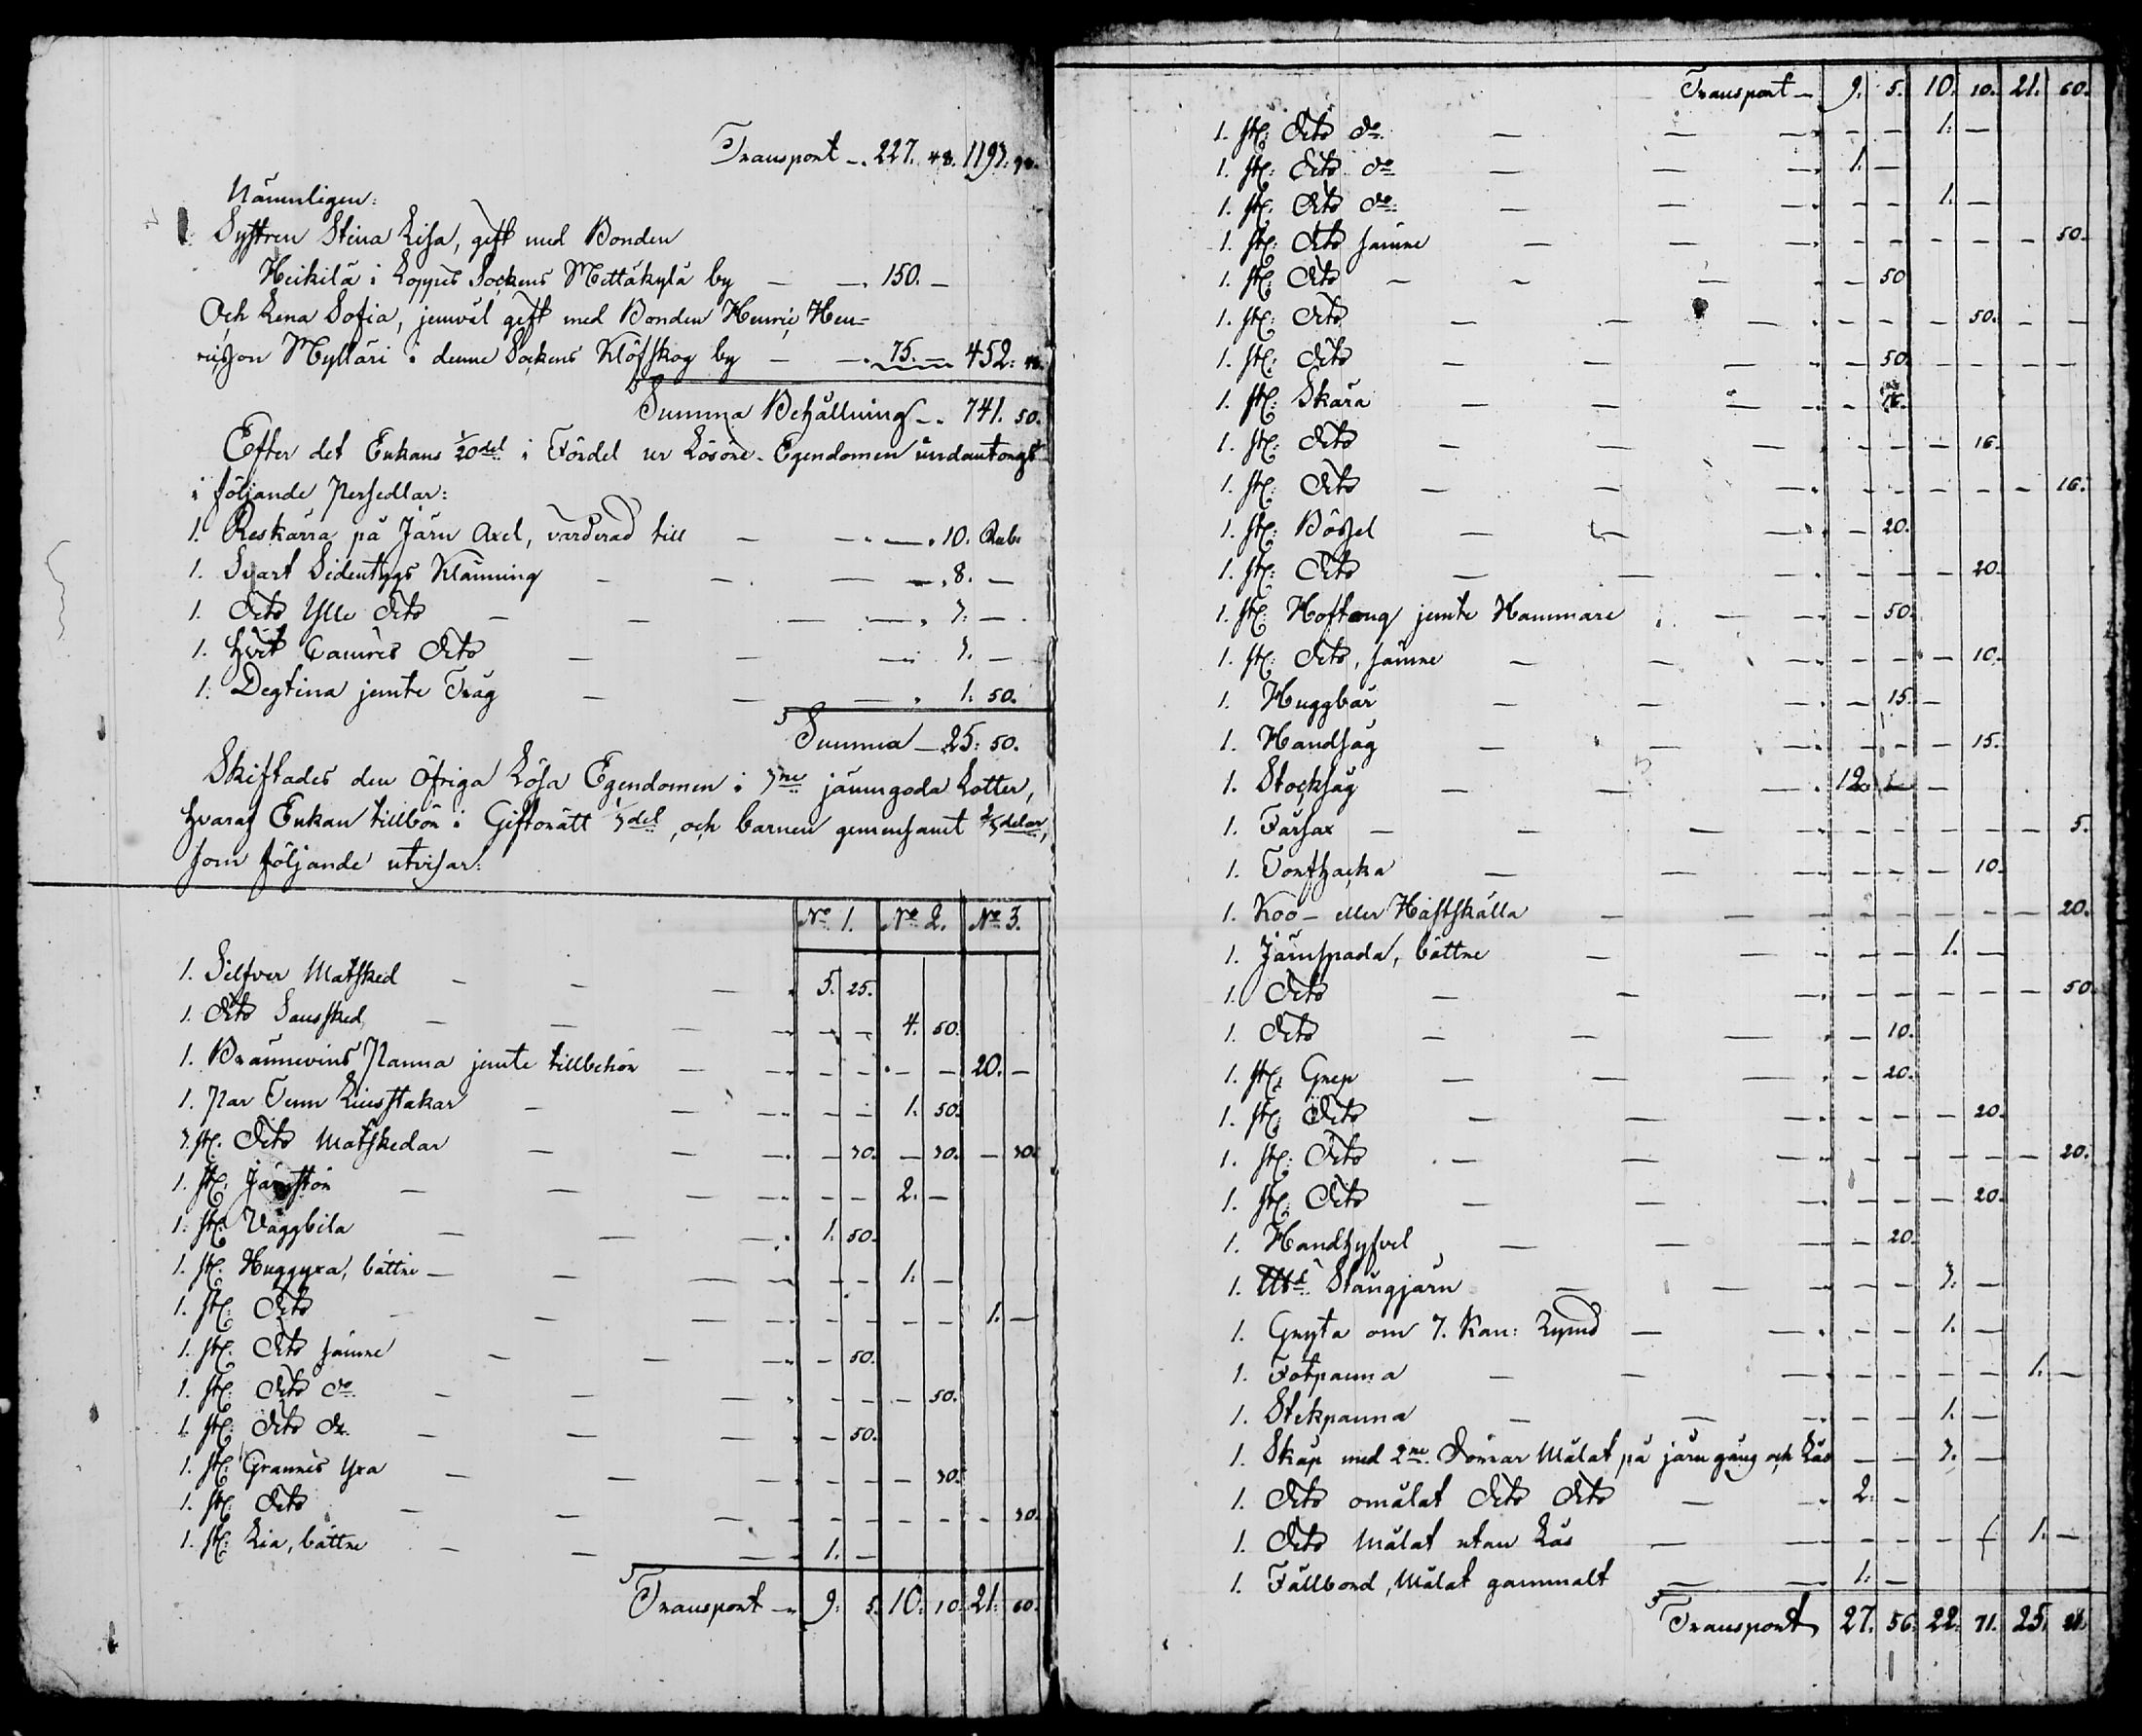 Transport -. 227. 48. 1193. 98.
Nämnligen:
Systren Stina Lisa, gift med Bonden
Heikilä i Loppis Sockens Mettäkylä by — —. 150. —
Och Lena Sofia, jemväl gift med Bonden Henric Hen-
ricsson Mylläri i denne Sockens Klöfskog by — —. 75. — 452: 48.
Summa Behållning -. 741. 50.
Efter det Enkans 1/20del i Fördel ur Lösöre-Egendomen undantagits
i följande Persedlar:
1. Reskärra på Järn Axel, värderad till — —. —. 10. Rub:
1. Svart Sidentygs Klänning — — — —. 8. —
1. Dito Ylle Dito — — — —. 3. —
1. Hvit Camris Dito — — —. 3. —
1. Degtina jemte Tråg — — —. 1. 50.
Summa — 25: 50.
Skiftades den öfriga Lösa Egendomen i 3ne jämngoda Lotter,
hvaraf Enkan tillhör i Giftorätt 1/3del, och barnen gemensamt 2/3delar,
som följande utvisar:
No 1. No 2. No 3.
1. Silfver Matsked — — — 5. 25.
1. Dito Saussked — — — — — — 4. 50.
1. Brännevins Panna jemte tillbehör — — — — — — 20. —
1. Par Tenn Ljusstakar — — — — — 1. 50.
3. st. Dito Matskedar — — — — 30. — 30. — 30.
1. st. Järnstör — — — — — — 2. —
1. st. Väggbila — — — 1. 50.
1. st. Huggyxa, bättre — — — — — — 1. —
1. st. Dito — — — — — — — — 1. —
1. st. Dito sämre — — — — 50.
1. st. Dito do — — — — — — 50.
1. st. Dito do — — — — 50.
1. st. Grannis Yxa — — — — — — 30.
1. st. Dito — — — — — — — — 30.
1. st. Lia, bättre — — — 1. —
Transport — 9: 5. 10: 10. 21: 60.
Transport — 9. 5. 10. 10. 21. 60.
1. st. Dito do — — — — — 1. —
1. st. Dito do — — — 1. —
1. st. Dito do — — — — — 1. —
1. st. Dito sämre — — — — — — — — 50.
1. st. Dito — — — — 50
1. st. Dito — — — — — — 50. — —
1. st. Dito — — — — 50. — — — —
1. st. Skära — — — —
1. st. Dito — — — — — — 16.
1. st. Dito — — — — — — — — 16.
1. st. Bössel — — — — 20.
1. st. Dito — — — — — — 20.
1. st. Hoftong jemte Hammare — — — 50.
1. st. Dito, sämre — — — — — — 10.
1. Huggbår — — — — 15. —
1. Handsåg — — — — — — 15.
1. Stocksåg — — — 12. — —
1. Fårsax — — — — — — — — 5.
1. Torfhacka — — — — — — 10.
1. Koo- eller Hästskälla — — — — — — — — 20.
1. Järnspada, bättre — — — — 1. —
1. Dito — — — — — — — — 50.
1. Dito — — — — 10.
1. st. Grep — — — — 20.
1. st. Dito — — — — — — 20.
1. st. Dito — — — — — — — — 20.
1. st. Dito — — — — — — 20.
1. Handhyfvel — — — — 20.
1. Stångjärn — — — — 3. —
1. Gryta om 7. Kan: Rymd — — — — 1. —
1. Fotpanna — — — — — — — 1. —
1. Stekpanna — — — — — 1. —
1. Skåp med 2ne Dörrar Målat på järn gång och Lås — — 3. —
1. Dito omålat Dito Dito — — 2. —
1. Dito Målat utan Lås — — — — — 1. —
1. Fällbord, Målat gammalt — — 1. —
Transport 27. 56. 22. 71. 25.